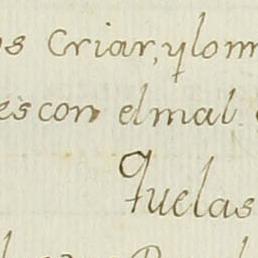 os Criar, y lo m
es con el mal
Quelas